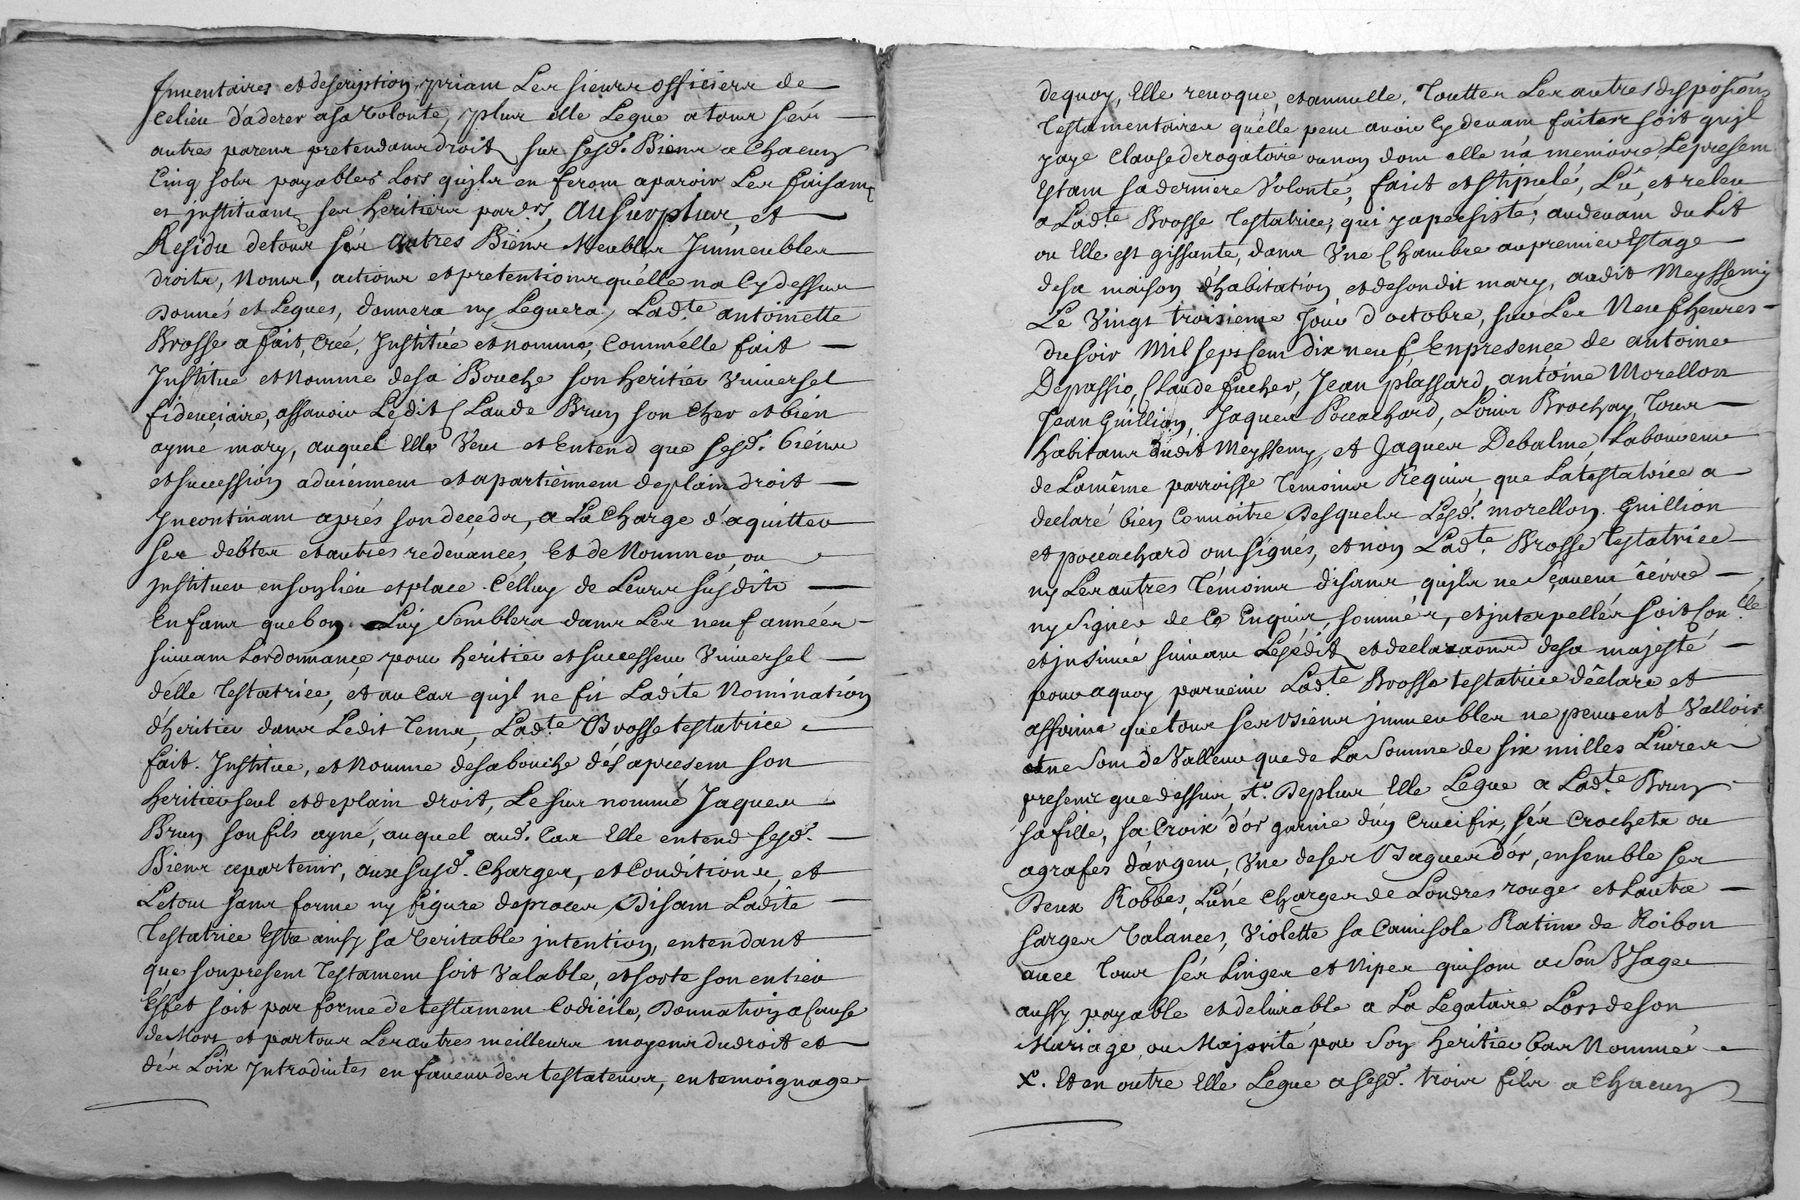 Inventaires et description, priant Les sieurs officiers de
celieu d'aderer asa volonté, plus elle Legue atous ses
autres parens pretendans droit sur sesd. Biens a Chacun
Cinq sols payables Lors qu'ils en feront aparoir Les faisant
et instituant ses heritiers par.ers, Au surplus, et
Residu detous ses autres Biens Meubles Immeubles
droits, Noms, actions et pretentions qu'elle na Cydessus
Donnés et Legues, donnera ny Leguera, Lad.te antoinette
Brosse a fait, créé, Institué et nommé, Comm'elle fait
Institue et Nomme desa Bouche son heritier Universel
fideuciaire, assavoir Ledit Claude Brun son cher et bien
ayme mary, auquel Elle Veut et Entend que sesd. biens
et succession adviennent et apartiennent deplain droit
Incontinant aprés son decedz, a La Charge d'aquitter
ses debtes et autres redevances, Et de Nommer, ou
instituer ensonlieu et place Celluy de Leurs susdits
Enfans que bon Luy Semblera dans Les neuf années
suivant Lordonnance, pour heritier et successeur Universel
d'elle Testatrice, et au Cas qu'il ne fit Ladite Nomination
d'heritier dans Ledit Tems, Lad.te Brosse testatrice
fait, Institue, et Nomme desabouche dés apresent son
heritier seul et deplain droit, Le sus nommé Jaques
Brun sonfils ayné, auquel aud. Cas Elle entend sesd.
Biens apartenir, aux susd. Charges, et Conditions, et
Letout sans forme ny figure deproces, Disant Ladite
Testatrice Estre ainsy sa veritable intention, entendant
que sonpresent Testament soit Valable, et sorte son entier
Effet soit par forme de testament Codicile, Donnation a Cause
de Mort et partous Les autres meilleurs moyens dudroit et
dés Loix Introduites en faveur des testateurs, entemoignage
dequoy, Elle revoque, et annulle, Touttes Les autres dispositions
Testamentaires qu'elle peut avoir Cy devant faites soit qu'il
yaye Clause derogatoire ounon dont elle n'a memoire, Lepresent
Estant sa derniere Volonté, fait et stipulé, Lû, et releu
a Lad.te Brosse Testatrice, qui yapersisté, audevant du Lit
ou Elle est gissante, dans Vne Chambre aupremier Estage
desa maison d'habitation, et desondit mary, audit Meyssemy
Le Vingt troisieme Jour d'octobre, sur Les Neuf heures
du soir Mil sept Cent dix neuf, Enpresence de antoine
Depassio, Claude fucher, Jean plassard, antoine Morellon
Jean Guillion, Jaques Pouachard, Louis Brochay, Tous
habitans dudit Meyssemy, et Jaques Debalme, Laboureur
de Lamême parroisse Temoins Requis, que Latestatrice a
declaré bien Connoitre, Desquels Lesd. morellon, Guillion
et pouachard ont signés, et non Lad.te Brosse Testatrice
ny Les autres Témoins disans qu'ils ne sçavent écrire
ny signer de Ce Enquis, sommés, et interpellés soit Con.llé
et insinué suivant Lesédit et declaraons desa majesté
pour aquoy parvenir Lad.te Brosse testatrice déclare et
affirme quetous ses Biens immeubles ne peuvent Valloir
et ne sont de Valleur que de La somme de six milles Livres
presens que dessus, X. Deplus Elle Legue a Lad.te Brun
sa fille, sa Croix d'or garnie d'un Crucifix, sés Crochets ou
agrafes d'argent, Vne deses Bagues d'or, ensemble ses
Deux Robbes, L'une charger de Londres rouge et Lautre
sarges Valances, Violette sa Camisole Ratine de Roibon
avec Tous sés Linges et Nipes quisont a son Usage
aussy payable et delivrable a La Legataire Lors deson
Mariage, ou Majorité par Son heritier Bas Nommé
X. Et en outre Elle Legue a sesd. trois fils a Chacun